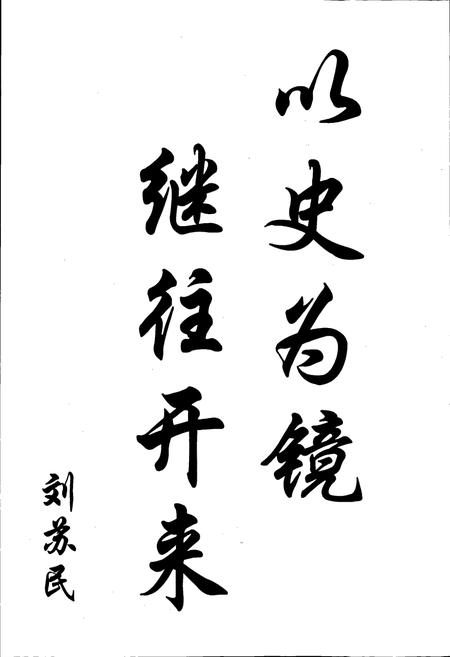 以史为镜
继往开来
刘苏民